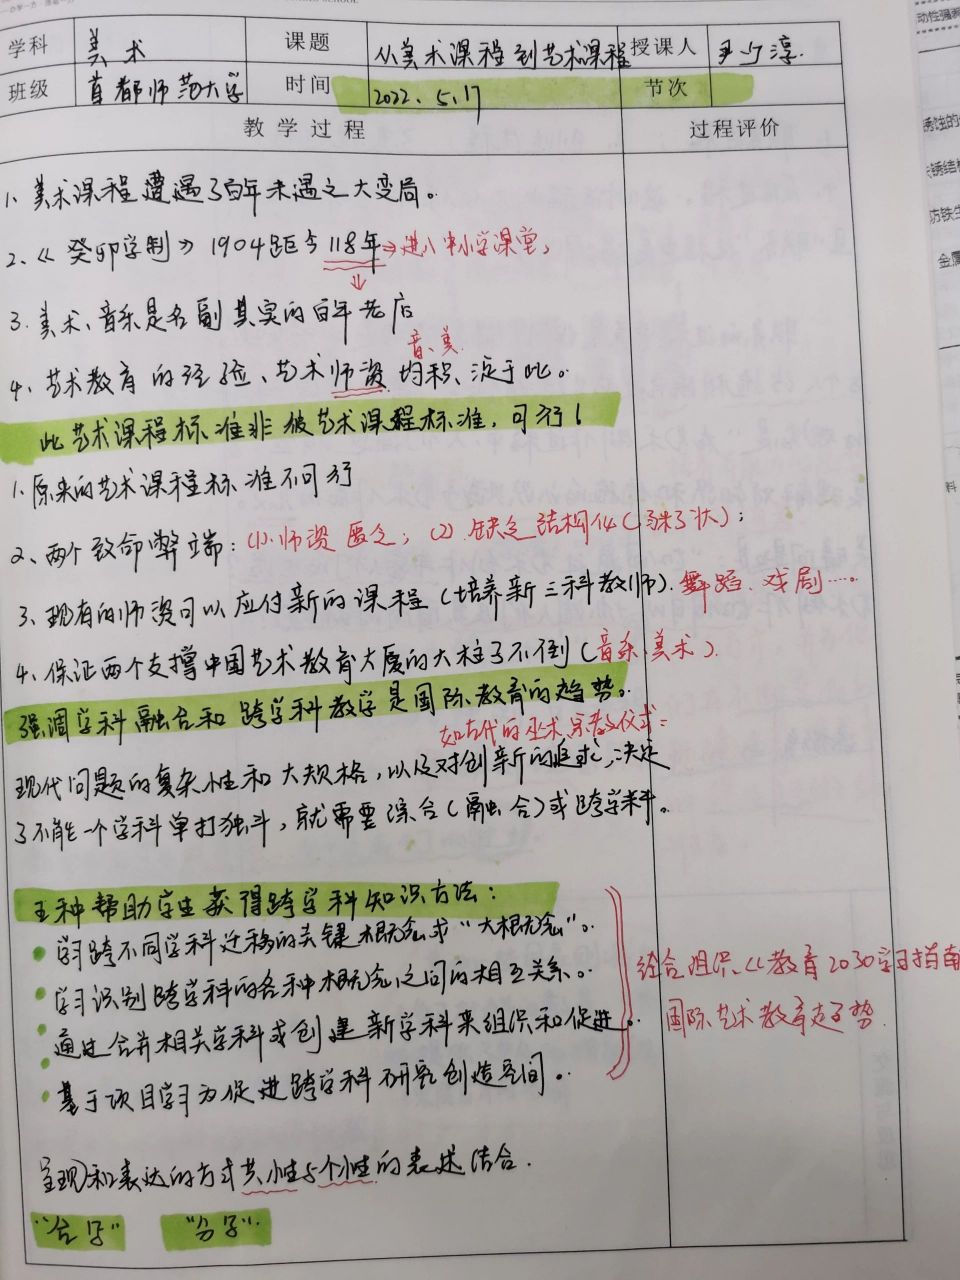 学科 美术 课题 从美术课程到艺术课程 授课人 尹少淳.
班级 首都师范大学 时间 2022.5.17 节次
教学过程 过程评价
1、美术课程遭遇了百年未遇之大变局。
2、《癸卯学制》1904距今118年→进入中小学课堂;
3.美术、音乐是名副其实的百年老店
音、美
4、艺术教育的经验、艺术师资均积淀于此。
此艺术课程标准非彼艺术课程标准,可行!
1.原来的艺术课程标准不可行
2、两个致命弊端:(1).师资匮乏;(2).缺乏结构化(马赛克状);
3、现有的师资可以应付新的课程(培养新三科教师).舞蹈、戏剧……
4、保证两个支撑中国艺术教育大厦的大柱子不倒(音乐、美术).
强调学科融合和跨学科教学是国际教育的趋势。
如古代的巫术、宗教仪式:
现代问题的复杂性和大规格,以及对创新的追求,决定
了不能一个学科单打独斗,就需要综合(融合)或跨学科。
五种帮助学生获得跨学科知识方法:
学习跨不同学科迁移的关键概念或“大概念”。
学习识别跨学科的各种概念之间的相互关系。
通过合并相关学科或创建新学科来组织和促进。
基于项目学习为促进跨学科研究创造空间。
经合组织《教育2030学习指南
国际艺术教育趋势.
呈现和表达的方式共性与个性的表述结合.
“合写” “分写”.